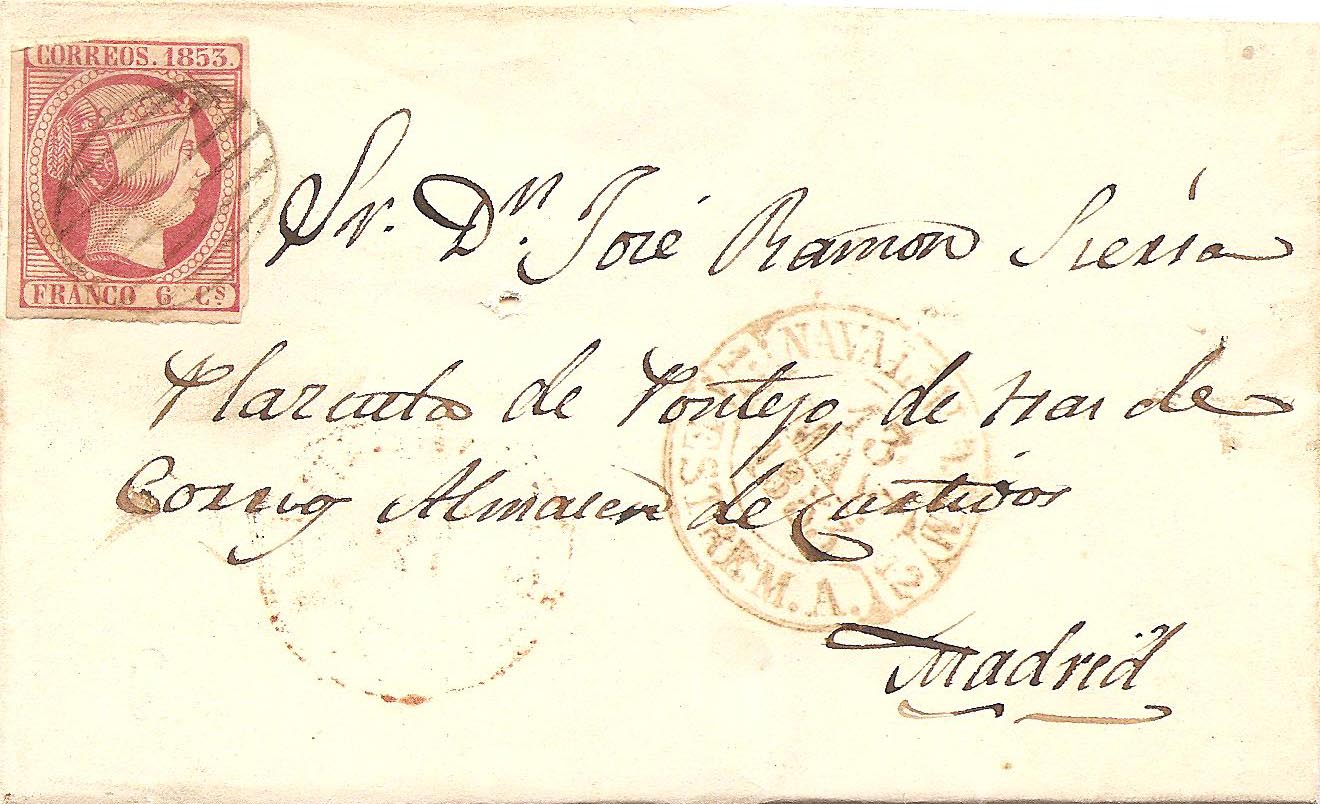 CORREOS. 1853.
FRANCO 6 Cs
Sr. Dn. José Ramon Sierra
Plazuela de Pontejo, de tras de
Correos Almacen de Curtidos
Madrid
NAVALM
ESTREM. A.